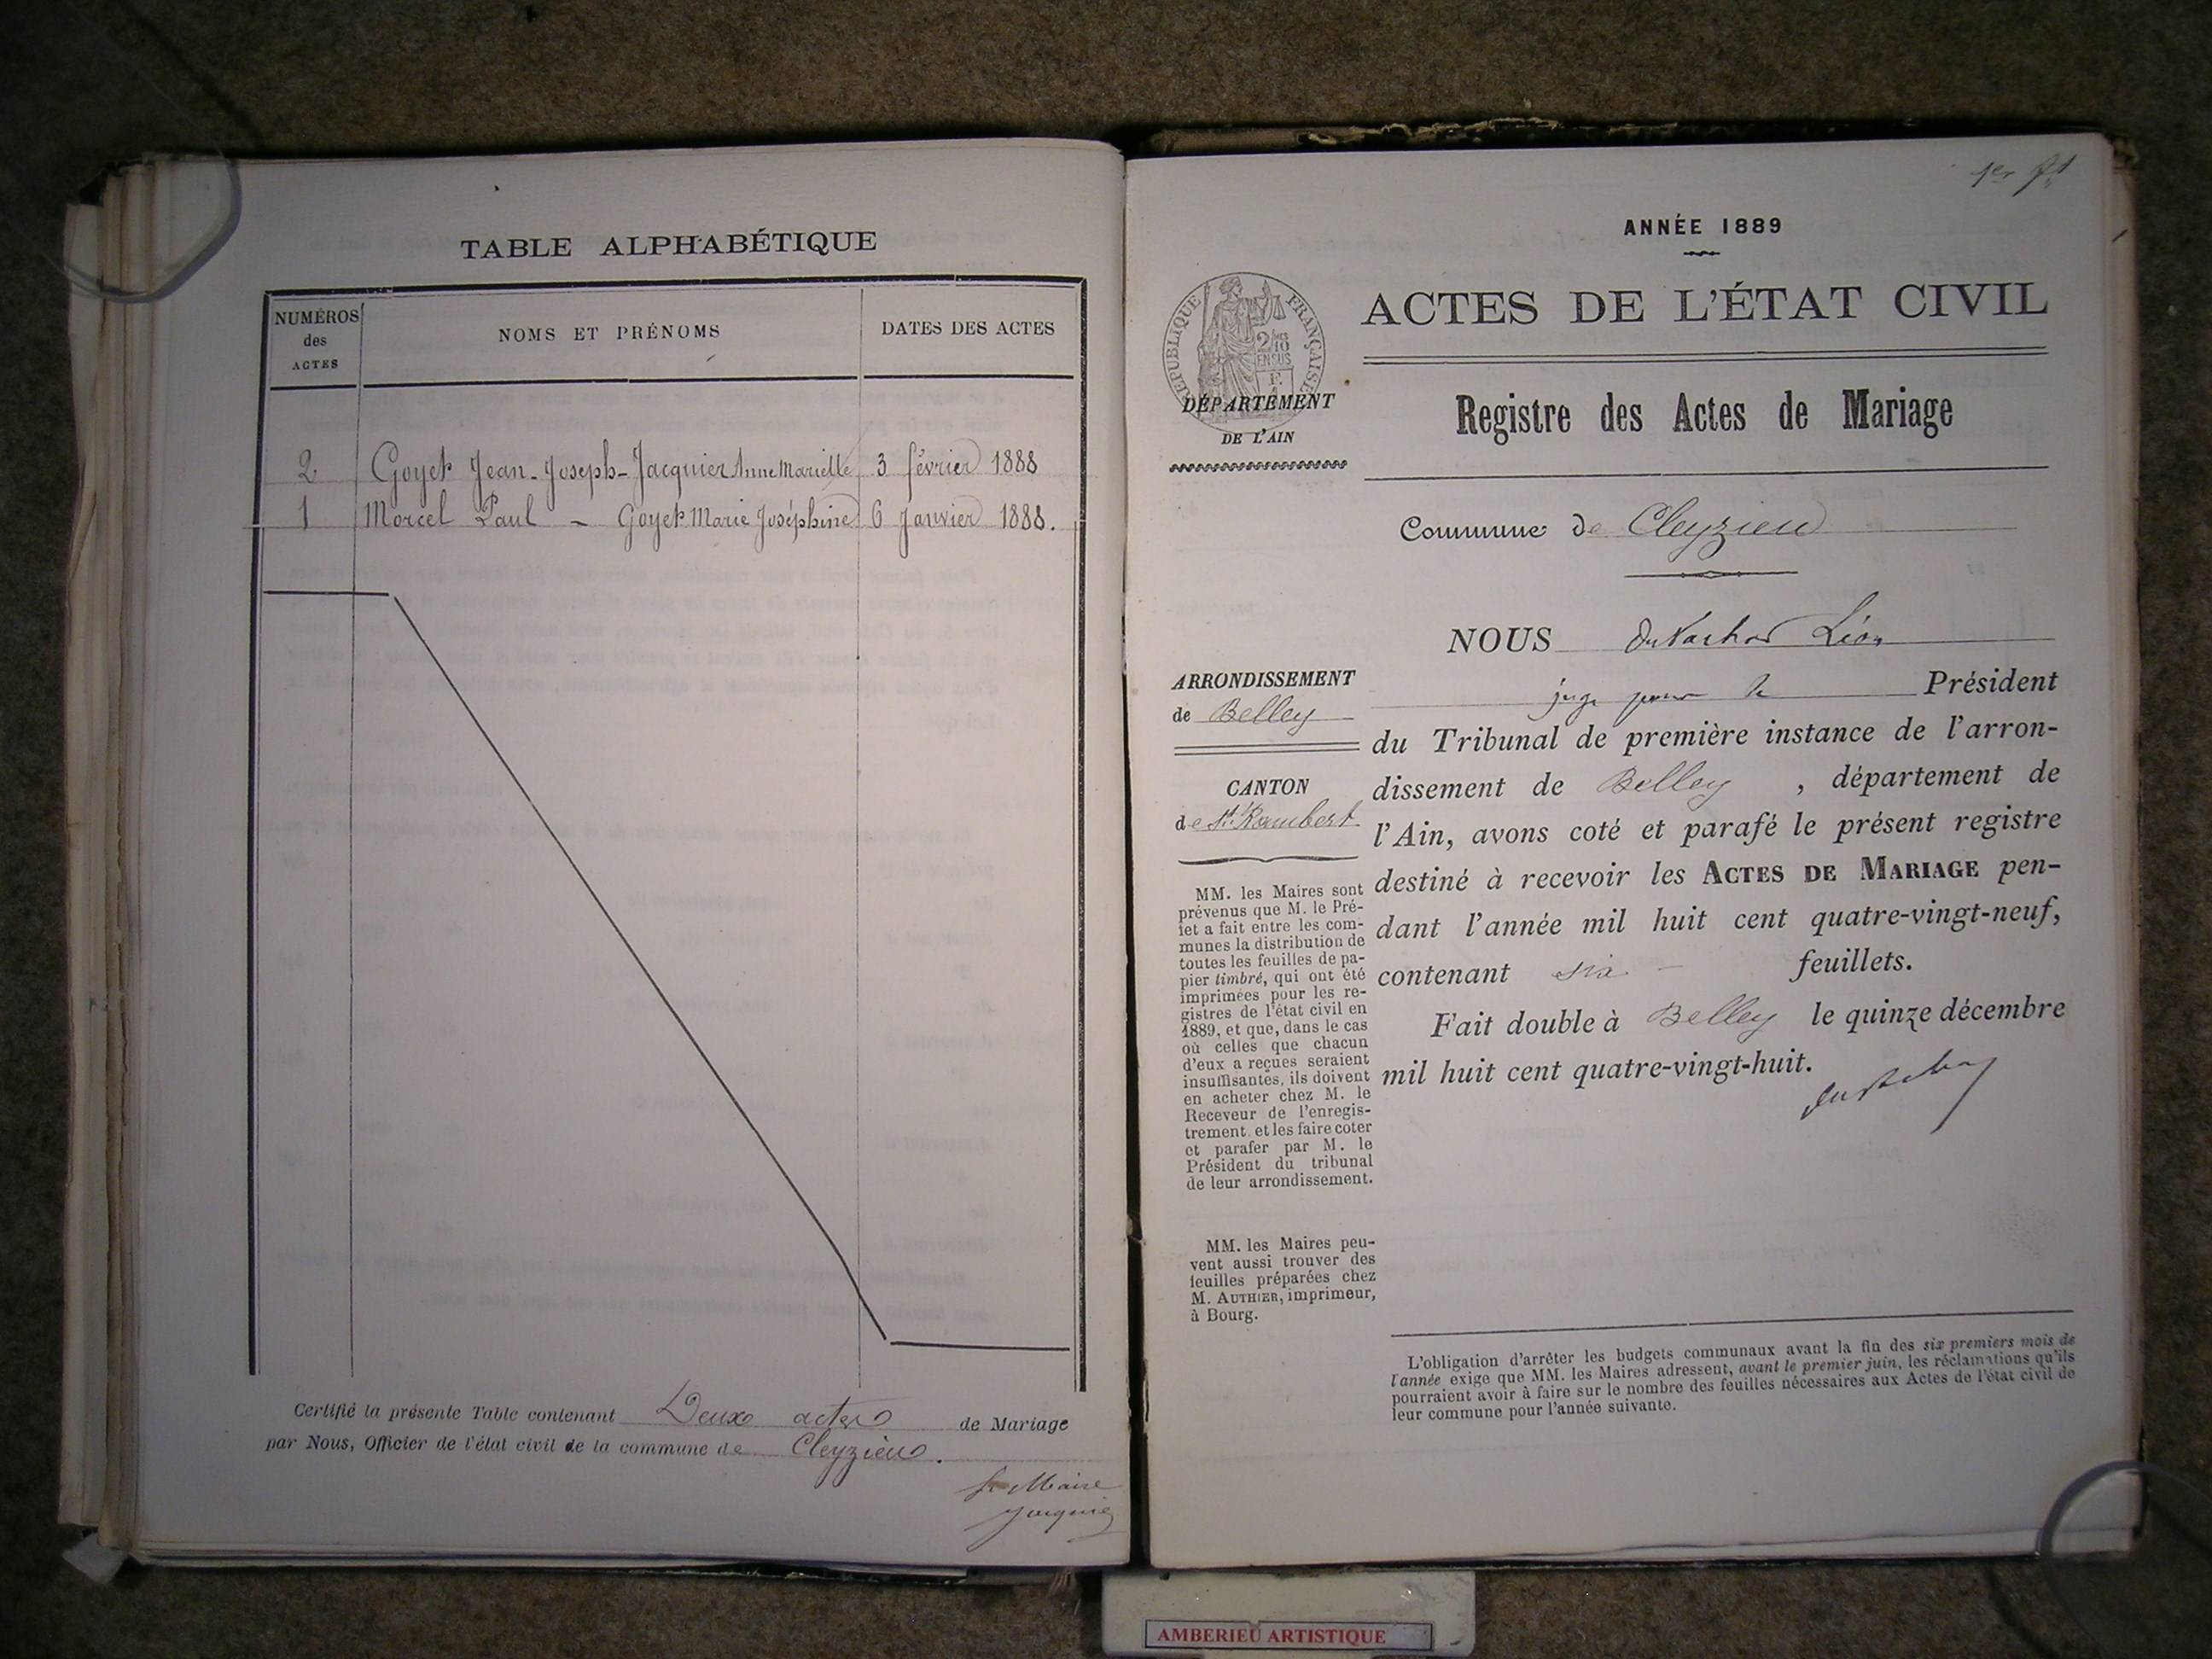 TABLE ALPHABÉTIQUE
NUMÉROS des ACTES
NOMS ET PRÉNOMS
DATES DES ACTES
2 Goyet Jean-Joseph - Jacquier Anne Mariette 3 février 1888
1 Morcel Paul - Goyet Marie Joséphine 6 Janvier 1888.
Certifié la présente Table contenant Deux actes de Mariage
par Nous, Officier de l'état civil de la commune de Cleyzieu.
Le Maire
Jacquier
1er
ANNÉE 1889
ACTES DE L'ÉTAT CIVIL
RÉPUBLIQUE FRANÇAISE
DÉPARTEMENT
DE L'AIN
Registre des Actes de Mariage
Commune de Cleyzieu
ARRONDISSEMENT
de Belley
CANTON
de St Rambert
MM. les Maires sont
prévenus que M. le Pré-
fet a fait entre les com-
munes la distribution de
toutes les feuilles de pa-
pier timbré, qui ont été
imprimées pour les re-
gistres de l'état civil en
1889, et que, dans le cas
où celles que chacun
d'eux a reçues seraient
insuffisantes, ils doivent
en acheter chez M. le
Receveur de l'enregis-
trement et les faire coter
et parafer par M. le
Président du tribunal
de leur arrondissement.
MM. les Maires peu-
vent aussi trouver des
feuilles préparées chez
M. AUTHIER, imprimeur,
à Bourg.
NOUS Léon
juge pour le Président
du Tribunal de première instance de l'arron-
dissement de Belley, département de
l'Ain, avons coté et parafé le présent registre
destiné à recevoir les ACTES DE MARIAGE pen-
dant l'année mil huit cent quatre-vingt-neuf,
contenant six feuillets.
Fait double à Belley le quinze décembre
mil huit cent quatre-vingt-huit.
L'obligation d'arrêter les budgets communaux avant la fin des six premiers mois de
l'année exige que MM. les Maires adressent, avant le premier juin, les réclamations qu'ils
pourraient avoir à faire sur le nombre des feuilles nécessaires aux Actes de l'état civil de
leur commune pour l'année suivante.
AMBERIEU ARTISTIQUE